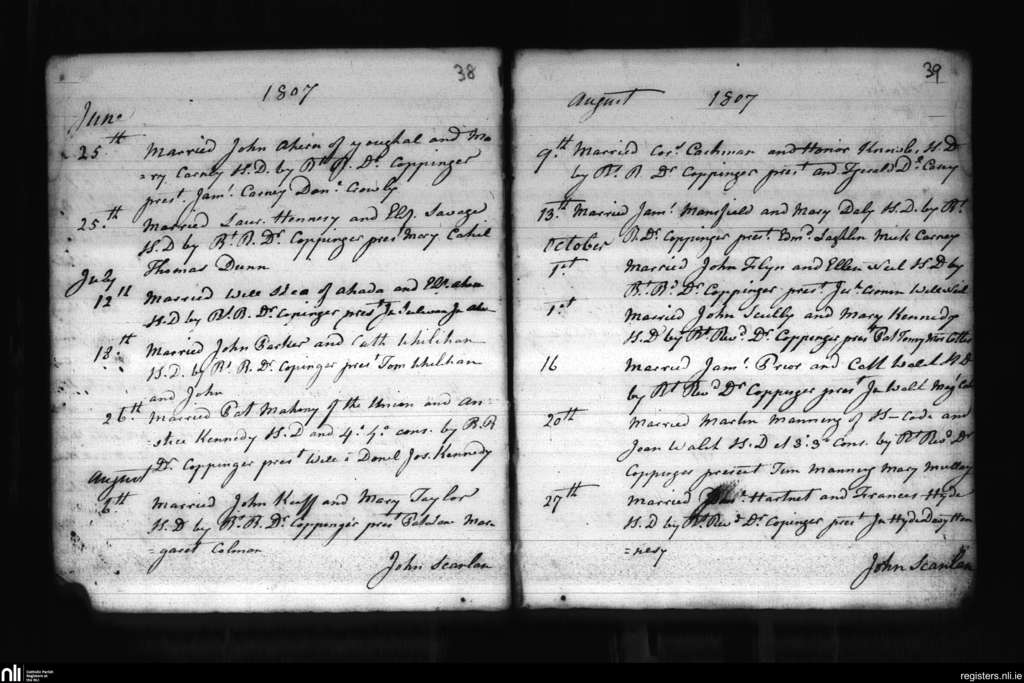 38
1807
June
25th Married John Ahern of youghal and Ma
=ry Carney H.D. by Rt. R. Dr. Coppinger
prest. Jams. Carney Danl. Crowly
25th Married Laur. Hennesy and Eliz. Savage
H.D by Rt R. Dr. Coppinger prest Mary Cahil
Thomas Dunn
July
12th Married Will Shea of ahada and Eliz. ahern
H.D by Rt. R. Dr. Copinger prest Jn Sulivan Jn ahern
18th Married John Barker and Cath Whelhan
H.D. by Rt R. Dr. Copinger prest Tom Whelhan
and John
26th Married Pat Mahony of the Union and An=
=stice Kennedy H.D and 4o. 4o. cons. by R.R
Dr. Coppinger prest Will Donel Jos. Kennedy
August
6th Married John Kuff and Mary Taylor
H.D by Rt. R. Dr Coppenger prest Mar
=garet Colman
John Scanlan
39
August 1807
9th. Married Cors. Cashman and Honor H.D
by Rt. R Dr Coppinger prest and Dd. Carey
13th. Married Jams. Mansfield and Mary Daly H.D. by Rt.
R Dr. Coppinger prest. Edmd. Laghlin Mick Carney
October
1st Married John Flyn and Ellen Neil H.D by
Rt. Rd. Dr. Coppinger prest Jn. Cronin Will Neil
1st Married John Scully and Mary Kennedy
H.D by Rt Revd. Dr. Coppenger prest Pat
16 Married Jams. Prior and Cath Walsh H.D
by Rt Revd Dr Coppinger prest Jn Walsh
20th Married Martin Manning of and
Joan Walsh H.D et 3o. 3o Cons. by Rt Revd. Dr
Coppinger present Tim Manning Mary
27th Married Hartnet and Frances Hyde
H.D by Rt Revd Dr. Copinger prest Jn Hyde Davy Hen
=nesy
John Scanlan
nli
Catholic Parish
Registers at
the NLI
registers.nli.ie